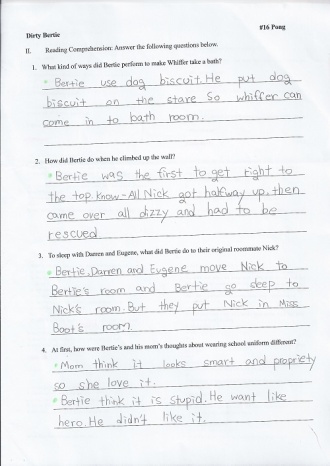 #16 Pong
Dirty Bertie
II. Reading Comprehension: Answer the following questions below.
1. What kind of ways did Bertie perform to make Whiffer take a bath?
Bertie use dog biscuit. He put dog
biscuit on the stare So whiffer can
come in to bath room.
2. How did Bertie do when he climbed up the wall?
Bertie was the first to get right to
the top. Know-All Nick got halfway up, then
came over all dizzy and had to be
rescued
3. To sleep with Darren and Eugene, what did Bertie do to their original roommate Nick?
Bertie, Darren and Eugene move Nick to
Bertie's room and Bertie go deep to
Nick's room. But they put Nick in Miss
Boot's room.
4. At first, how were Bertie's and his mom's thoughts about wearing school uniform different?
Mom think it looks smart and propriety
so she love it.
Bertie think it is stupid. He want like
hero. He didn't like it.